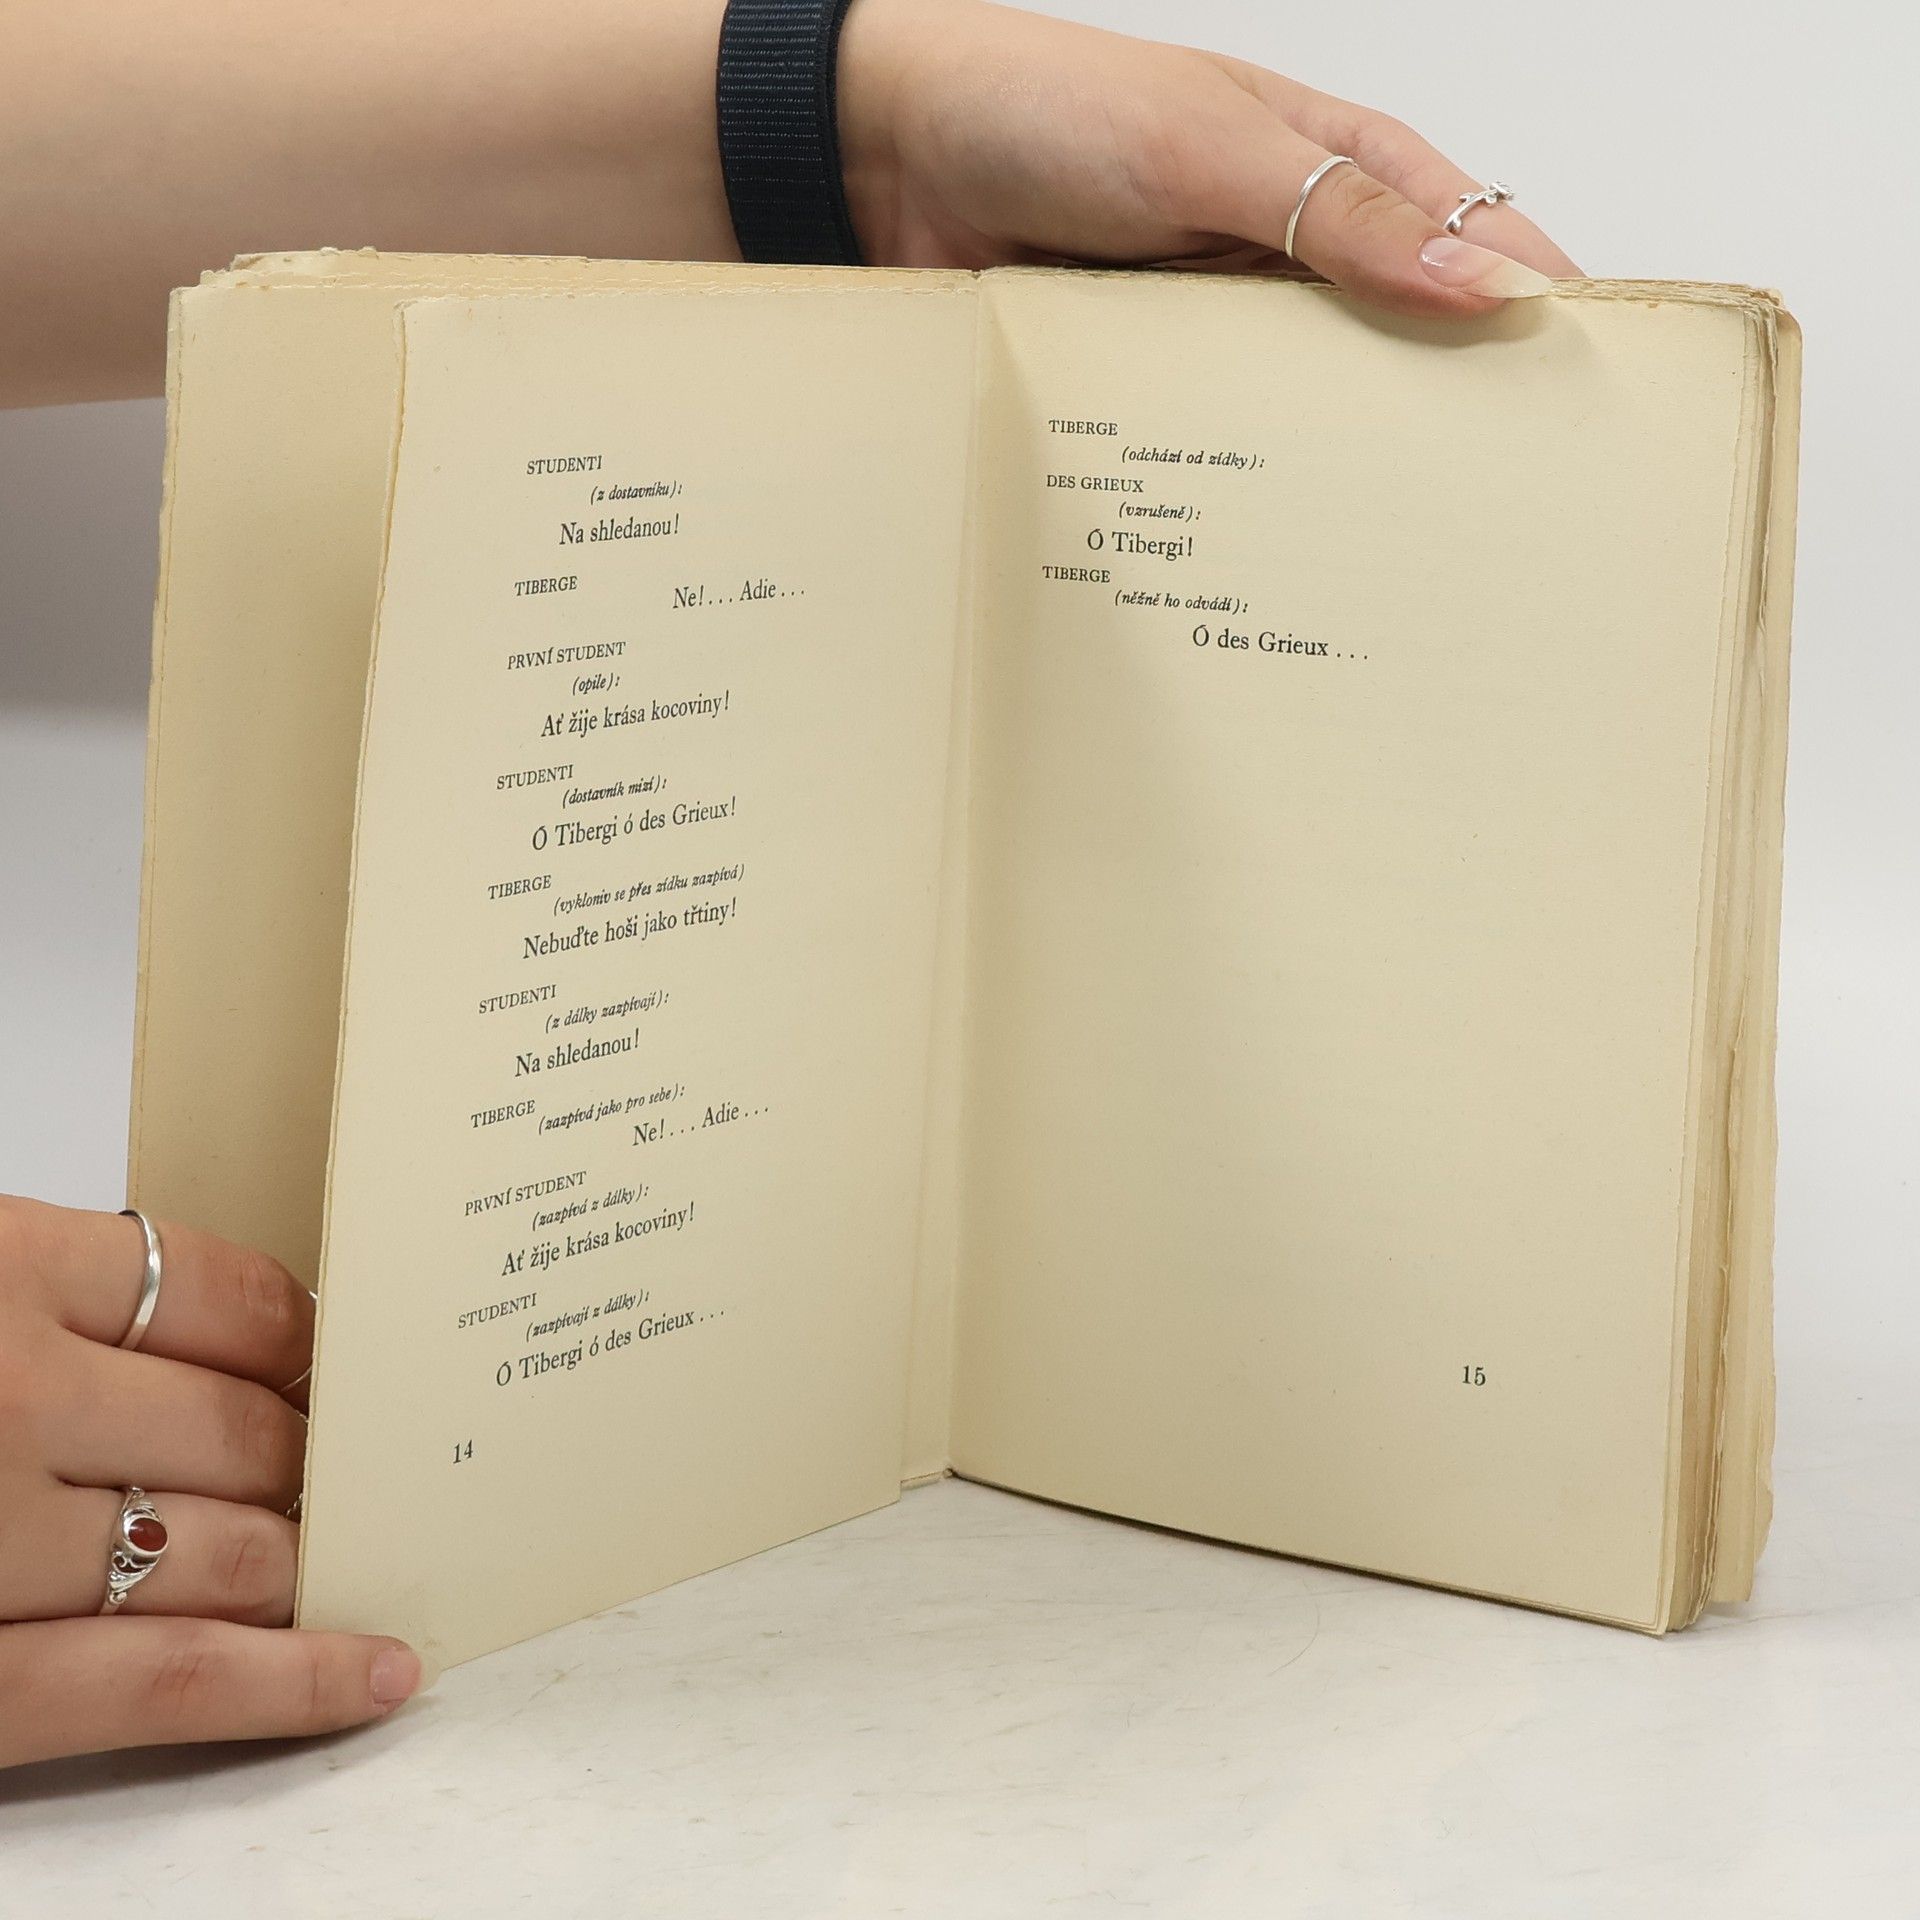 STUDENTI
(z dostavníku):
Na shledanou!
TIBERGE
Ne!... Adie...
PRVNÍ STUDENT
(opile):
Ať žije krása kocoviny!
STUDENTI
(dostavník mizí):
Ó Tibergi ó des Grieux!
TIBERGE
(vykloniv se přes zídku zazpívá)
Nebuďte hoši jako třtiny!
STUDENTI
(z dálky zazpívají):
Na shledanou!
TIBERGE
(zazpívá jako pro sebe):
Ne!... Adie...
PRVNÍ STUDENT
(zazpívá z dálky):
Ať žije krása kocoviny!
STUDENTI
(zazpívají z dálky):
Ó Tibergi ó des Grieux...
14
TIBERGE
(odchází od zídky):
DES GRIEUX
(vzrušeně):
Ó Tibergi!
TIBERGE
(něžně ho odvádí):
Ó des Grieux...
15